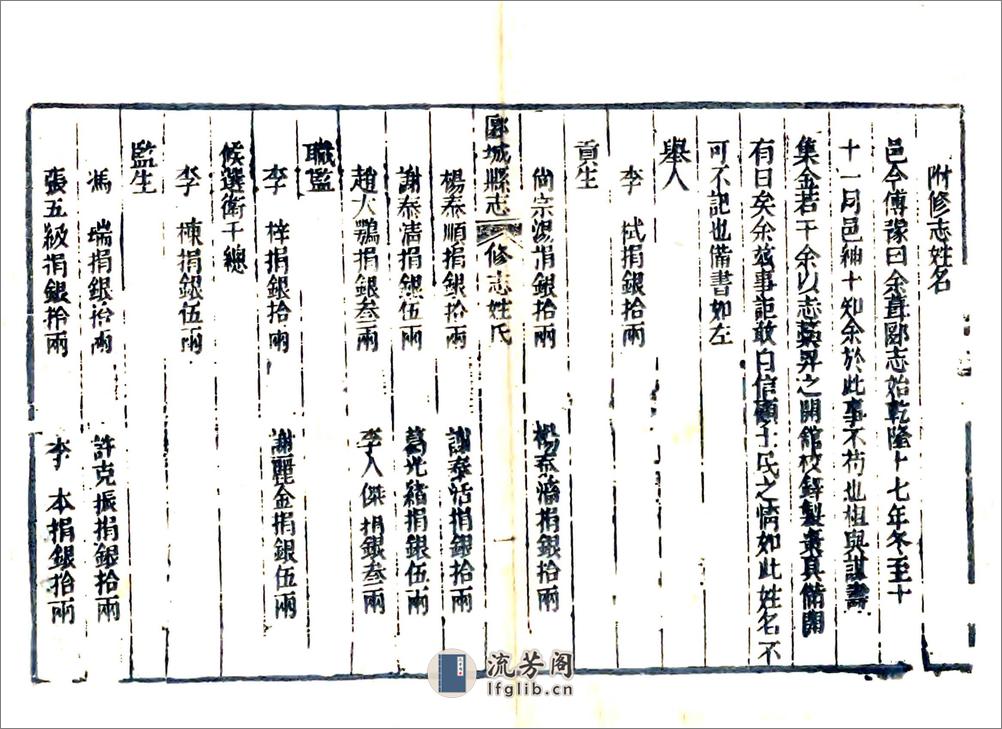 附修志姓名
邑令傅豫曰余葺郾志始乾隆十七年冬至十
十一月邑紳士知余於此事不苟也相與謀書
集金若干余以志藁畀之開館校錄製棗具備開
有日矣余茲事詎敢自信顧士民之情如此姓名不
可不記也備書如左
舉人
李 栻捐銀拾兩
貢生
尙宗湯捐銀拾兩 楊泰瀋捐銀拾兩
郾城縣志 修志姓氏 一
楊泰順捐銀拾兩 謝泰活捐銀拾兩
謝泰清捐銀伍兩 葛光緒捐銀伍兩
趙大鶚捐銀叁兩 李人傑捐銀叁兩
職監
李 梓捐銀拾兩 謝麗金捐銀伍兩
候選衛千總
李 棟捐銀伍兩
監生
馮 瑞捐銀拾兩 許克振捐銀拾兩
張五級捐銀拾兩 李 本捐銀拾兩
流芳阁
lfglib.cn